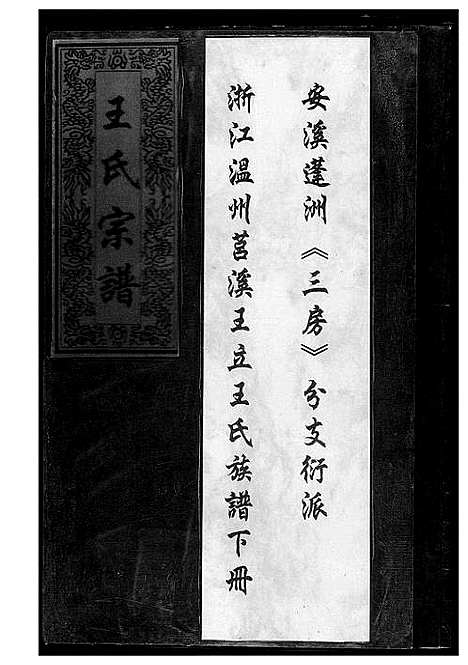 安溪蓬洲《三房》分支衍派
浙江温州莒溪王立王氏族譜下冊
王氏宗譜